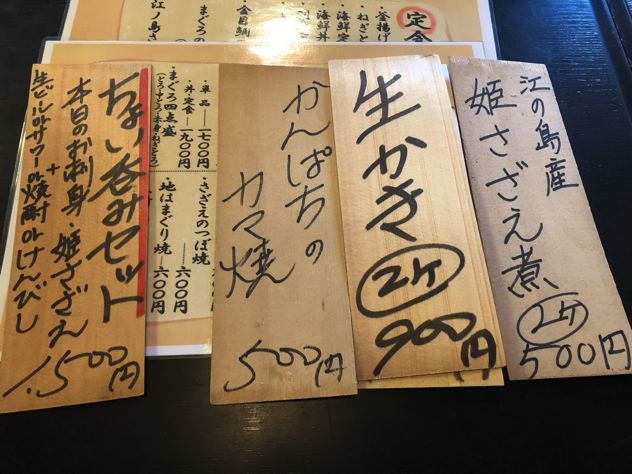 江の島産
姫さざえ煮
2ケ
500円
生かき
2ケ
900円
かんぱちの
カマ焼
500円
ちょい呑みセット
本日のお刺身
姫さざえ
+
生ビールorサワーor焼酎orけんびし
1.500円
定食
・釜揚げ
・ねぎと
・海鮮定
・海鮮丼
・刺
・金目鯛
・まぐろの
江ノ島さ
・まぐろ四点盛
(とろ・中とろ・赤身・ねぎとろ)
・単品 ― 一七〇〇円
丼・定食 ― 一九〇〇円
・さざえのつぼ焼
― 六〇〇円
・地はまぐり焼
― 六〇〇円